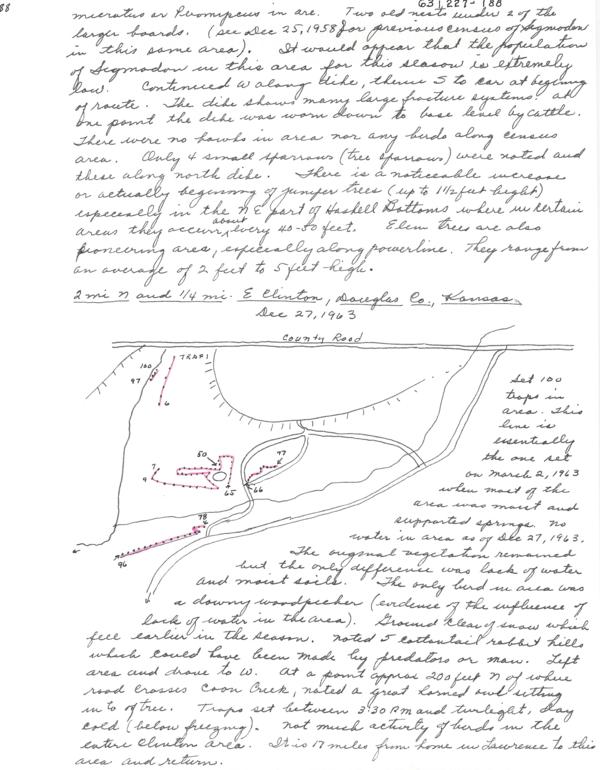 88
63|227-188
microtus or Peromyscus in are. Two old nests under 2 of the
larger boards. (see Dec 25, 1958 for previous census of Sigmodon
in this same area). It would appear that the population
of Sigmodon in this area for this season is extremely
low. Continued W along dike, thence S to car at begining
of route. The dike shows many large fracture systems. at
one point the dike was worn down to base level by cattle.
There were no hawks in area nor any birds along census
area. Only 4 small sparrows (tree sparrows) were noted and
these along north dike. There is a noticeable increase
or actually beginning of juniper trees (up to 1 1/2 feet height)
especially in the NE part of Haskell Bottoms where in certain
areas they occur about every 40-50 feet. Elm trees are also
pioneering area, especially along powerline. They range from
an average of 2 feet to 5 feet high.
2 mi N and 1/4 mi. E Clinton, Douglas Co., Kansas
Dec 27, 1963
County Road
100
TRAP 1
97
6
Set 100
traps in
area. This
line is
essentially
the one set
on March 2, 1963
when most of the
area was moist and
supported springs. no
water in area as of Dec 27, 1963.
50
77
7
9
65
66
78
96
The original vegetation remained
but the only difference was lack of water
and moist soils. The only bird in area was
a downy woodpecker (evidence of the influence of
lack of water in the area). Ground clear of snow which
fell earlier in the season. noted 5 cottontail rabbit kills
which could have been made by predators or man. Left
area and drove to W. At a point approx 200 feet N of where
road crosses Coon Creek, noted a great horned owl sitting
in to of tree. Traps set between 3:30 PM and twilight, day
cold (below freezing). not much activity of birds in the
entire Clinton area. It is 17 miles from home in Lawrence to this
area and return.